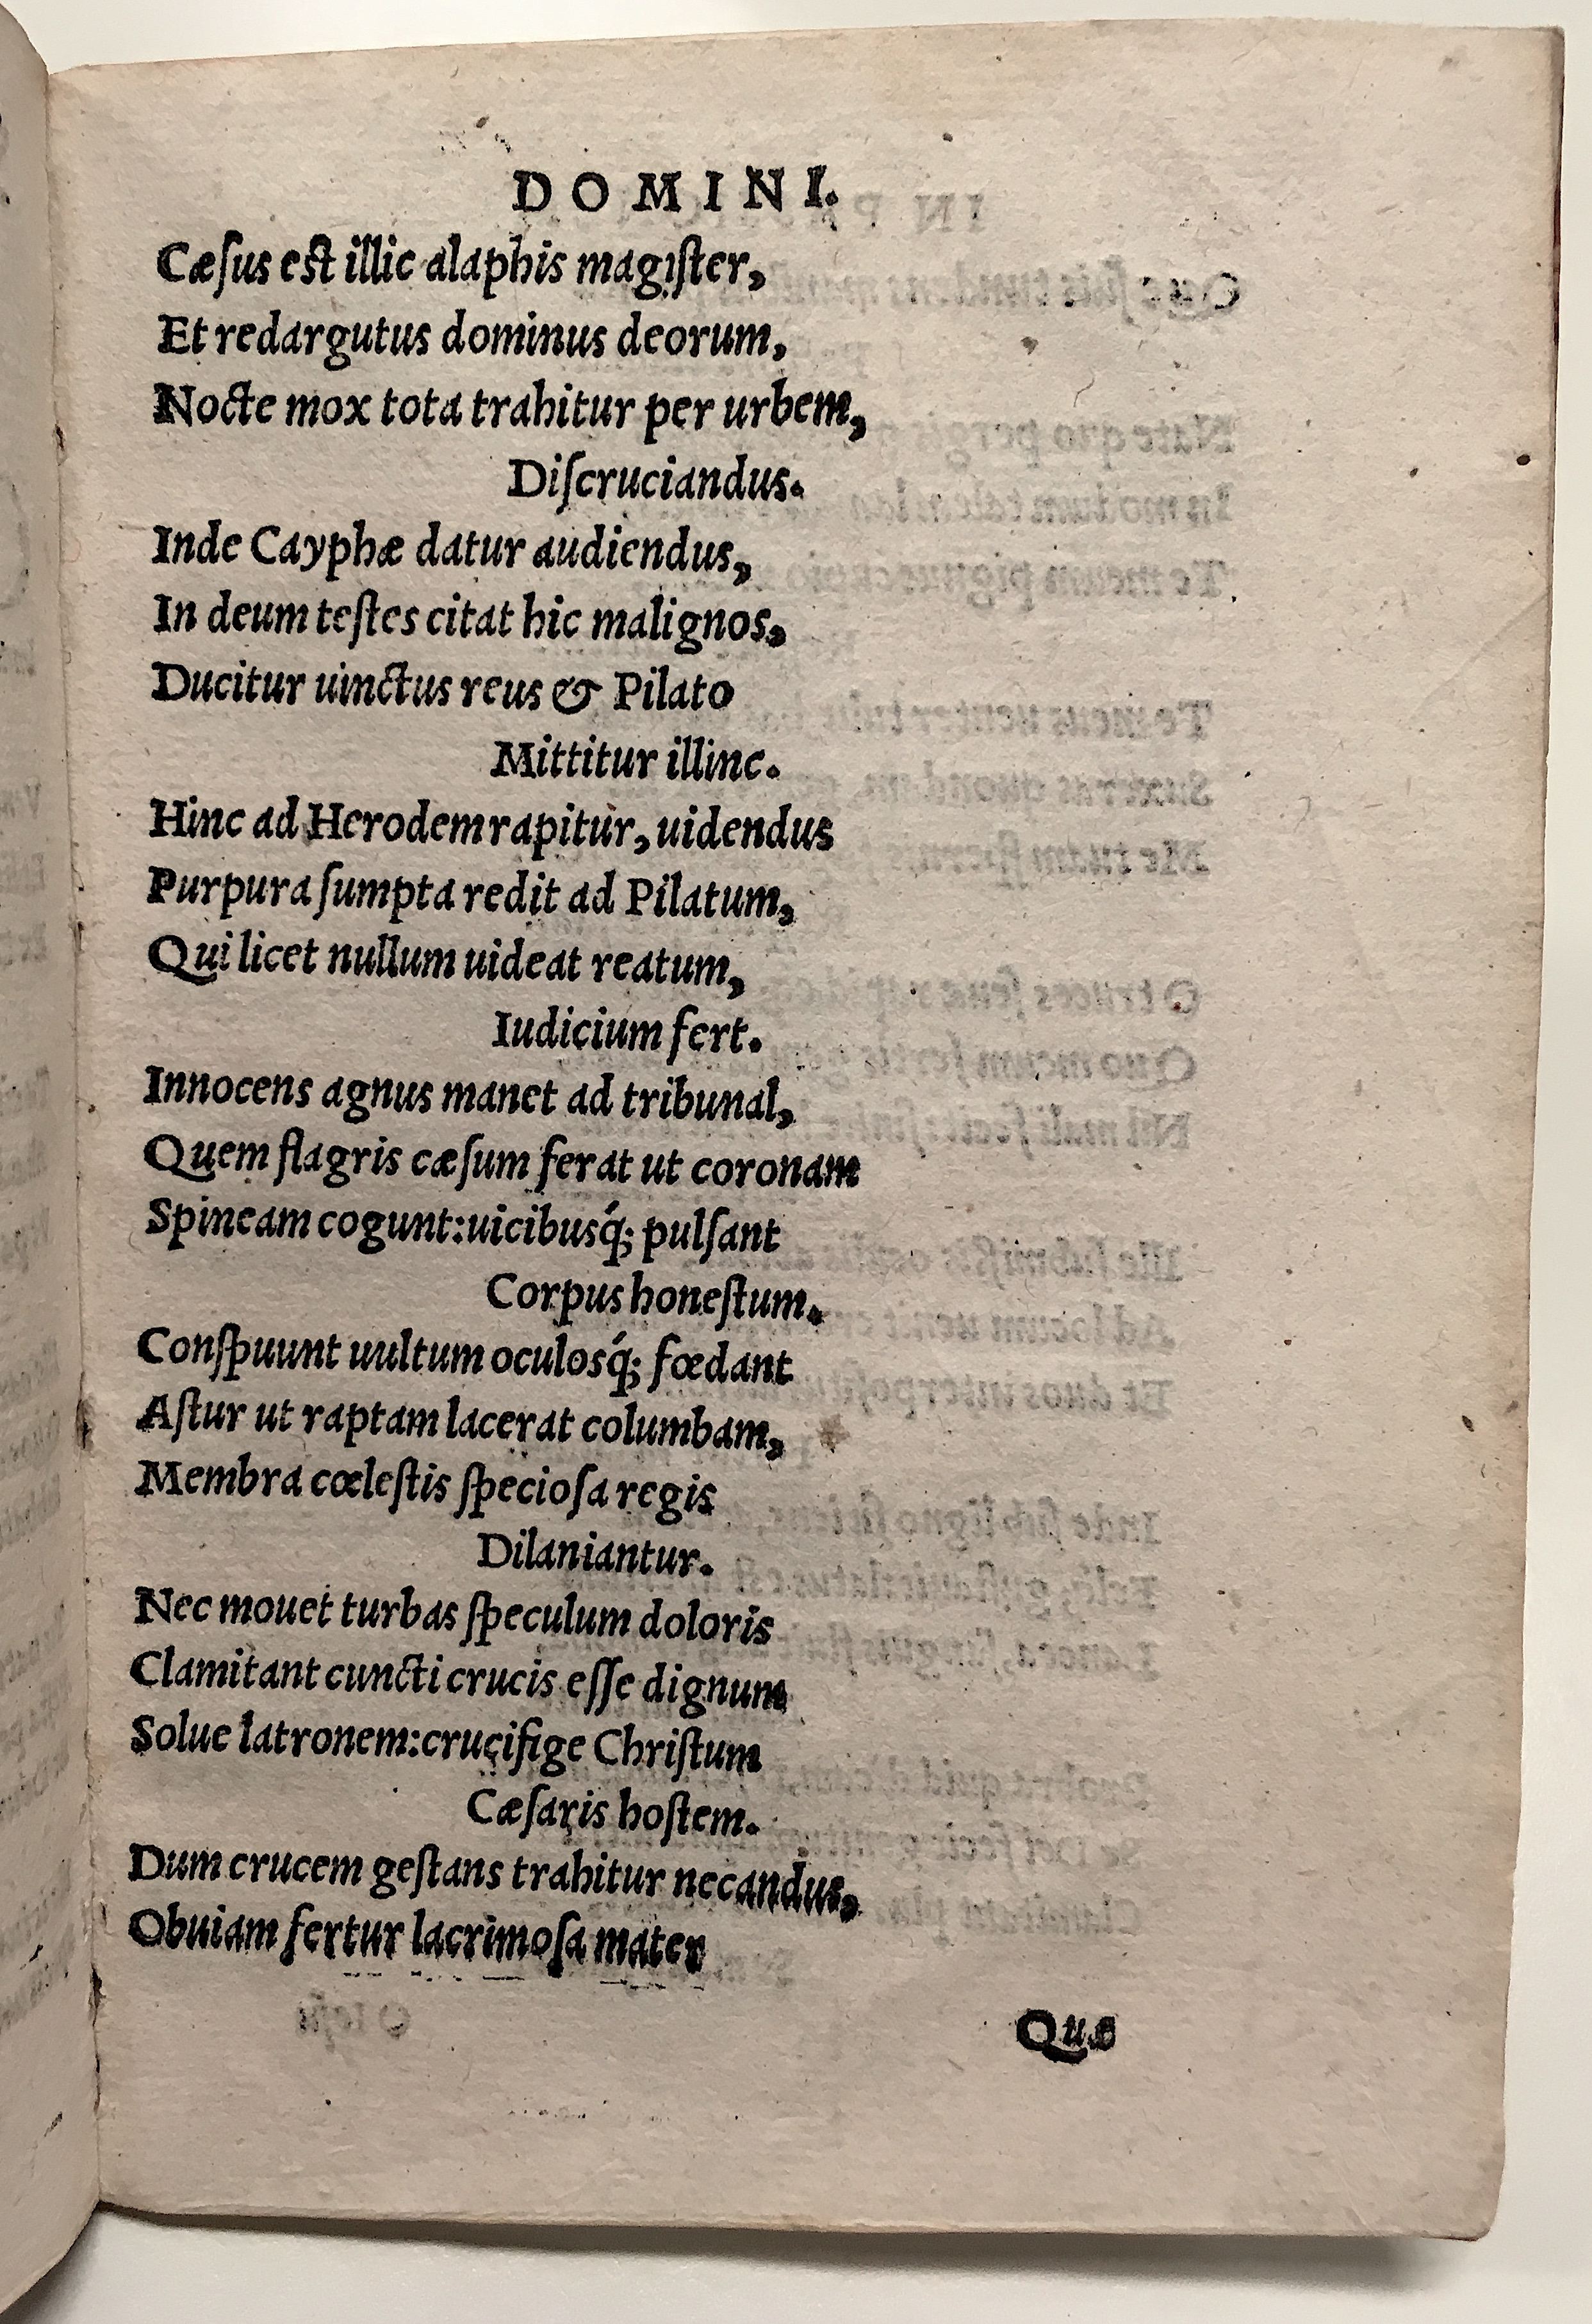 DOMINI.
Cæſus est illic alaphis magiſter,
Et redargutus dominus deorum,
Nocte mox tota trahitur per urbem,
Diſcruciandus.
Inde Cayphæ datur audiendus,
In deum teſtes citat hic malignos,
Ducitur uinctus reus & Pilato
Mittitur illinc.
Hinc ad Herodem rapitur, uidendus
Purpura ſumpta redit ad Pilatum,
Qui licet nullum uideat reatum,
Iudicium fert.
Innocens agnus manet ad tribunal,
Quem flagris cæſum ferat ut coronam
Spineam cogunt: uicibusq́; pulſant
Corpus honeſtum.
Conſpuunt uultum oculosq́; fœdant
Aſtur ut raptam lacerat columbam,
Membra cœleſtis ſpecioſa regis
Dilaniantur.
Nec mouet turbas ſpeculum doloris
Clamitant cuncti crucis eſſe dignum
Solue latronem: crucifige Chriſtum
Cæſaris hoſtem.
Dum crucem geſtans trahitur necandus,
Obuiam fertur lacrimoſa mater
Quæ